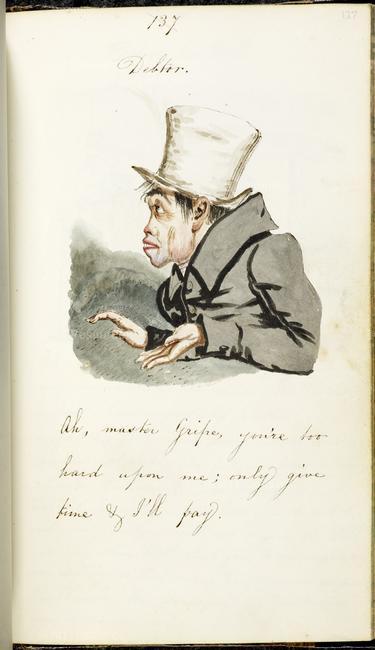 137
137
Debtor.
Ah, master Gripe, you're too
hard upon me; only give
time & I'll pay.